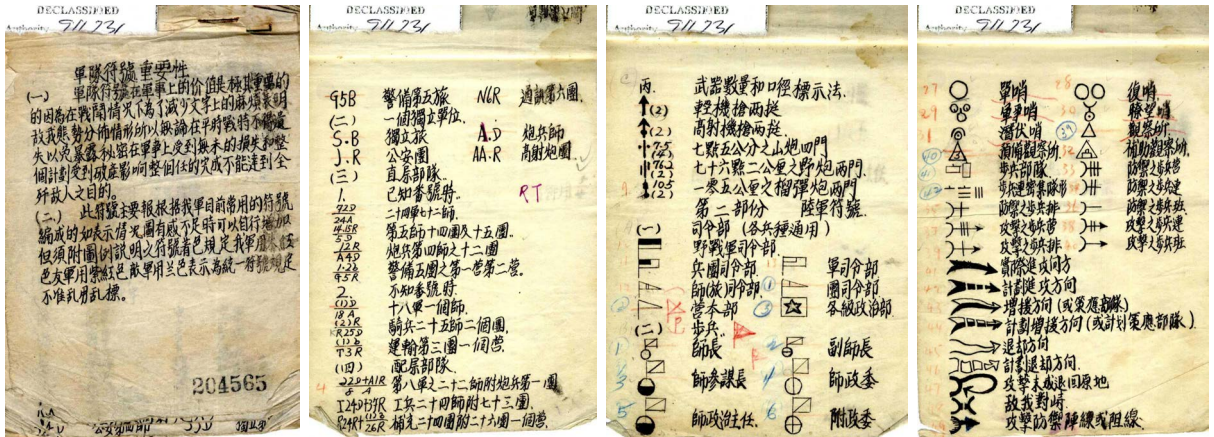 DECLASSIFIED
Authority 911231
軍隊符號重要性
(一) 軍隊符號在軍事上的价值是極其重要的
的因為在戰鬪情況下為了減少文字上的麻煩表明
敌我態勢分佈情形所以無論在平時戰時不得遺
失以免暴露秘密在軍事上受到無未的損失和整
個計劃受到破産影响整個任的完成不能達到全
歼敌人之目的。
(二) 此符號主要報根括我軍目前常用的符號
編成的如表示情況圖有感不足時可以自行增加
但須附圖例説明之符號着色規定我軍用
色友軍用紫紅色敵軍用兰色表示為統一符號規定
不准乱用乱標。
204565
DECLASSIFIED
Authority 911231
95B 警備第五旅 N6R 通訊第六團.
(二) 一個獨立單位.
S.B 獨立旅 A.D 炮兵師
J.R 公安團 AA.R 高射炮團.
(三) 直屬部隊.
1. 已知番號時. RT
22D
24A 二四軍七二師.
14.15R
5D 第五師十四團及十五團.
12R
A4D 炮兵第四師之十二團
1-2b
95R 警備五團之第一营第二营.
2. 不知番號時.
(1)D
18A 十八軍一個師.
(2)R
R25D 騎兵二十五師二個團.
(1)b
T3R 運輸第三團一個营.
(四) 配屬部隊.
22D+A1R
8A 第八軍之二十二師附炮兵第一團
I24D+79R 工兵二十四師附七十三團.
S24R+(1)b
26R 補充二十四團附二十六團一個营.
DECLASSIFIED
Authority 911231
丙. 武器數量和口徑標示法.
(2) 輕機搶兩挺
(2) 高射機搶兩挺.
75
(4) 七點五公分之山炮四門
762
(2) 七十六點二公里之野炮兩門.
105
(2) 一零五公里之榴彈炮兩門
第二部份 陸軍符號.
(一) 司令部 (各兵種通用)
野戰軍司令部.
兵團司令部 軍司令部
師(旅)司令部 團司令部
营本部 各級政治部
(二) 步兵.
1 師長 2 副師長
3 師參謀長 4 師政委
5 師政治主任. 6 附政委
DECLASSIFIED
Authority 911231
27 單哨 28 復哨
29 軍事哨 30 瞭望哨
潛伏哨 39 觀察所
40 預備觀察所 32 補助觀察所.
步兵部隊 防禦之步兵营
步兵連密集隊形 防禦之步兵連
防禦之步兵排 防禦之步兵班
攻擊之步兵营 攻擊之步兵連
攻擊之步兵排 攻擊之步兵班
實際進攻向方
計劃進攻方向
增援方向 (或策應部隊)
計劃增援方向 (或計划策應部隊)
退却方向
計劃退却方向.
攻擊未成退回原地
敌我對峙.
攻擊防禦陣綫或阻線